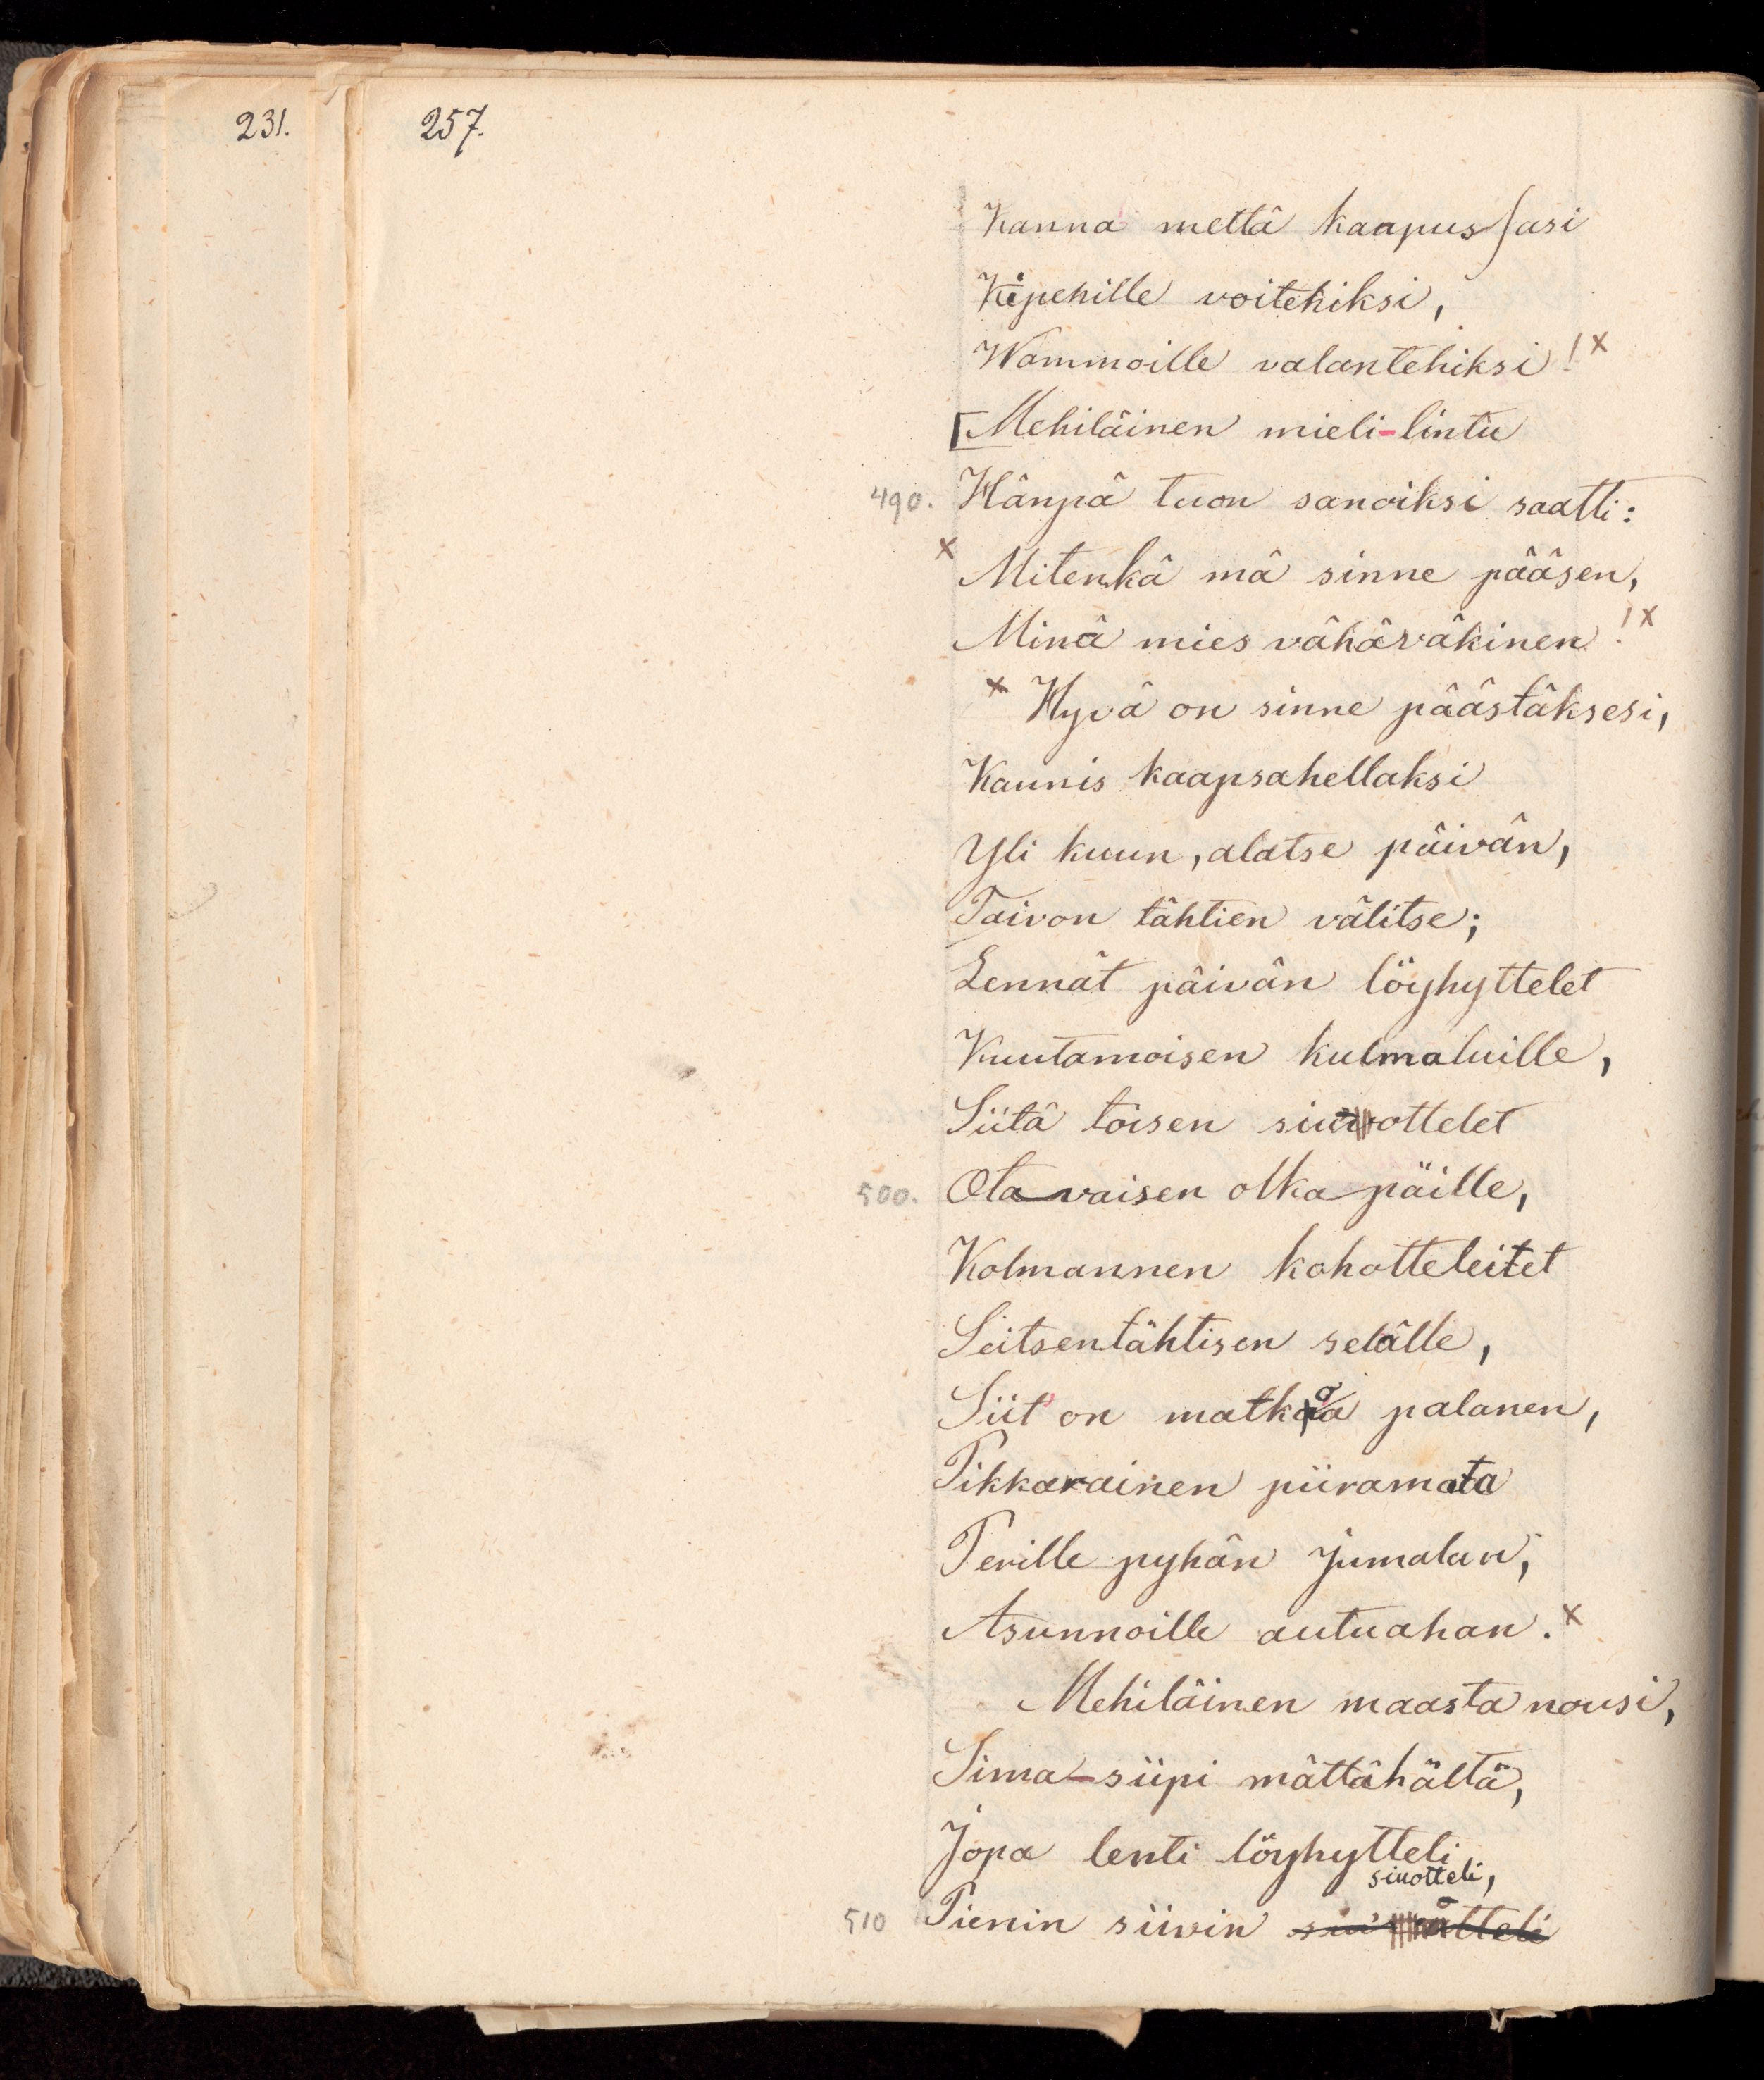 231.
257.
Kanna mettä kaapussasi
Kipehille voitehiksi,
Wammoille valantehiksi! x
[Mehiläinen mieli-lintu
490. Hänpä tuon sanoiksi saatti:
x Mitenkä mä sinne pääsen,
Minä mies vähäväkinen! x
x Hyvä on sinne päästäksesi,
Kaunis kaapsahellaksi
Yli kuun, alatse päivän,
Taivon tähtien välitse;
Lennät päivän löyhyttelet
Kuutamoisen kulmaluille,
Siitä toisen siuvottelet
500. Otavaisen olkapäille,
Kolmannen kohotteleitet
Seitsentähtisen selälle,
Siit' on matkoa palanen,
Pikkarainen piiramata
Perille pyhän Jumalan,
Asunnoille autuahan. x
Mehiläinen maasta nousi,
Sima-siipi mättähältä,
Jopa lenti löyhytteli
siuotteli,
510 Pienin siivin